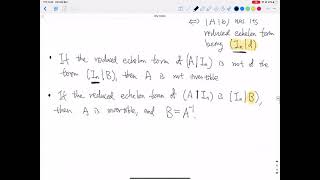 ⇔ (A|b) has its
reduced echelon form
being (In|d)
• If the reduced echelon form of (A|In) is not of the
form (In|B), then A is not invertible
• If the reduced echelon form of (A|In) is (In|B),
then A is invertible, and B=A⁻¹.